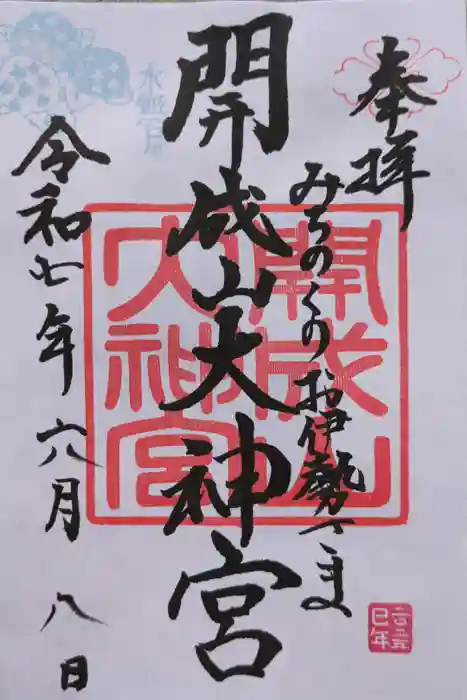 奉拝
みちのくのお伊勢さま
開成山大神宮
開成山
大神宮
令和七年 六月 八日
水無月
二〇二五
巳年